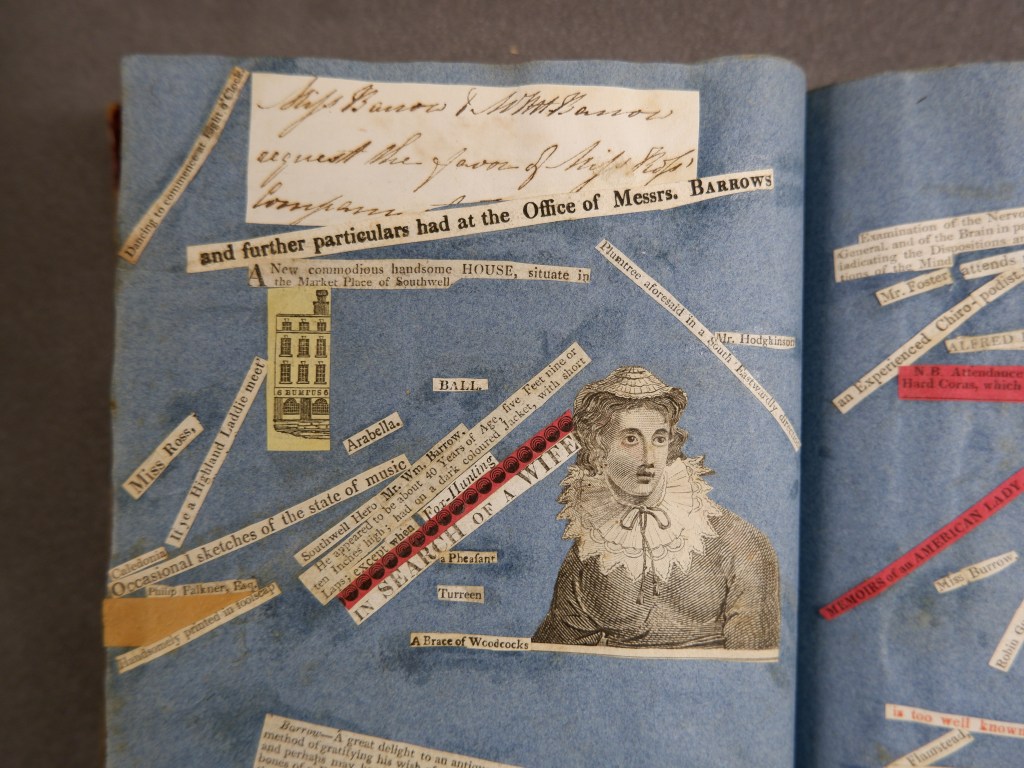 Dancing to commence at Eight o'Clock
Miss Barrow & Wm Barrow
request the favor of Miss Ross'
Company
and further particulars had at the Office of Messrs. BARROWS
A New commodious handsome HOUSE, situate in
the Market Place of Southwell
BUMPUS
Plumtree aforesaid in a South Eastwardly
Mr. Hodgkinson
BALL.
Arabella.
Miss Ross,
It is a Highland Laddie meet
Caledonia
Occasional sketches of the state of music
Philip Falkner, Esq.
Handsomely printed in foolscap
Southwell Hero Mr. Wm. Barrow,
He appeared to be about 40 Years of Age, five Feet nine or
ten Inches high had on a dark coloured Jacket, with short
Laps, except when Fox-Hunting
IN SEARCH OF A WIFE
a Pheasant
Turreen
A Brace of Woodcocks
Barrow.—A great delight to an
method of gratifying his
and perhaps may
bones of
Examination of the
General, and of the Brain in
indicating the Dispositions
tions of the Mind
Mr. Foster attends
an Experienced Chiropodist
ALFRED
N.B. Attendance
Hard Corns, which
MEMOIRS of an AMERICAN LADY
Miss Burrow
Robin
is too well known
Flaumstead